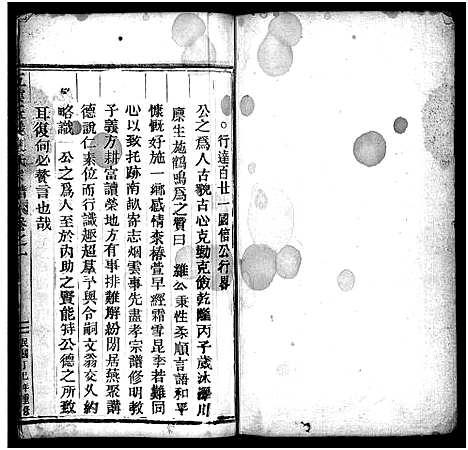 ○行達百廿一國倍公行畧
公之爲人古貌古心克勤克儉乾隆丙子歲沐澤川
廩生施鶴鳴爲之贊曰　維公秉性柔順言語和平
慷慨好施一鄉感情柰椿萱早經霜雪昆季若難同
心以致托跡南畝寄志烟雲事先盡孝宗譜修明教
子義方耕富讀榮地方有事排難解紛閒居燕聚講
德說仁素位而行識趣超羣予與令嗣文翁交久約
略識　公之爲人至於內助之賢能特公德之所致
耳復何必贅言也哉
民國丁巳年重修